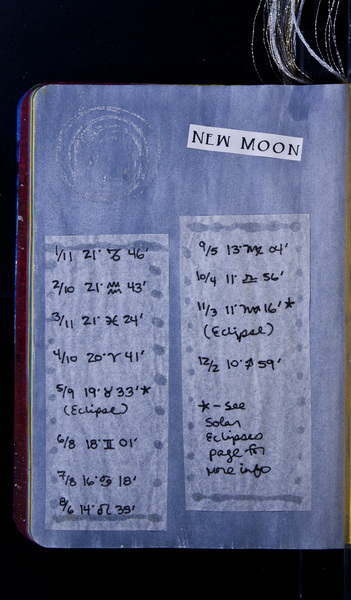 NEW MOON
1/11 21° ♑ 46'
2/10 21° ♒ 43'
3/11 21° ♓ 24'
4/10 20° ♈ 41'
5/9 19° ♉ 33' *
(Eclipse)
6/8 18° ♊ 01'
7/8 16° ♋ 18'
8/6 14° ♌ 39'
9/5 13° ♍ 04'
10/4 11° ♎ 56'
11/3 11° ♏ 16' *
(Eclipse)
12/2 10° ♐ 59'
* - See
Solar
Eclipses
page for
more info